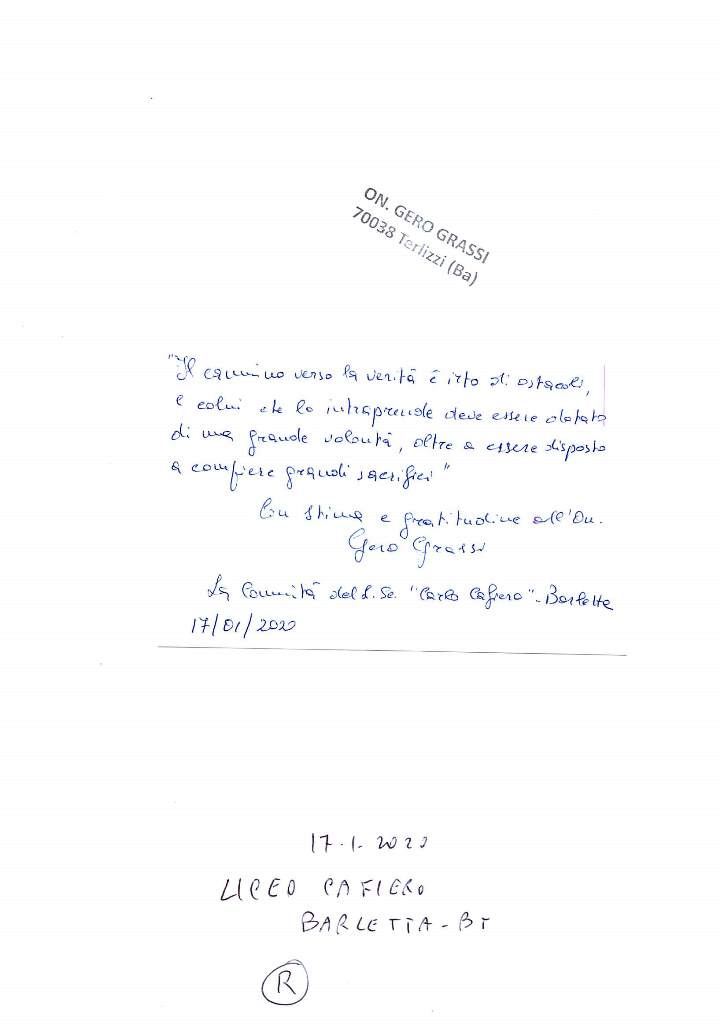 ON. GERO GRASSI
70038 Terlizzi (Ba)
"Il cammino verso la verità è irto di ostacoli,
e colui che lo intraprende deve essere dotato
di una grande volontà, oltre a essere disposto
a compiere grandi sacrifici"
Con stima e gratitudine all'On.
Gero Grassi
La Comunità del L. Sc. "Carlo Cafiero" - Barletta
17/01/2020
17.1.2020
LICEO CAFIERO
BARLETTA - BT
R